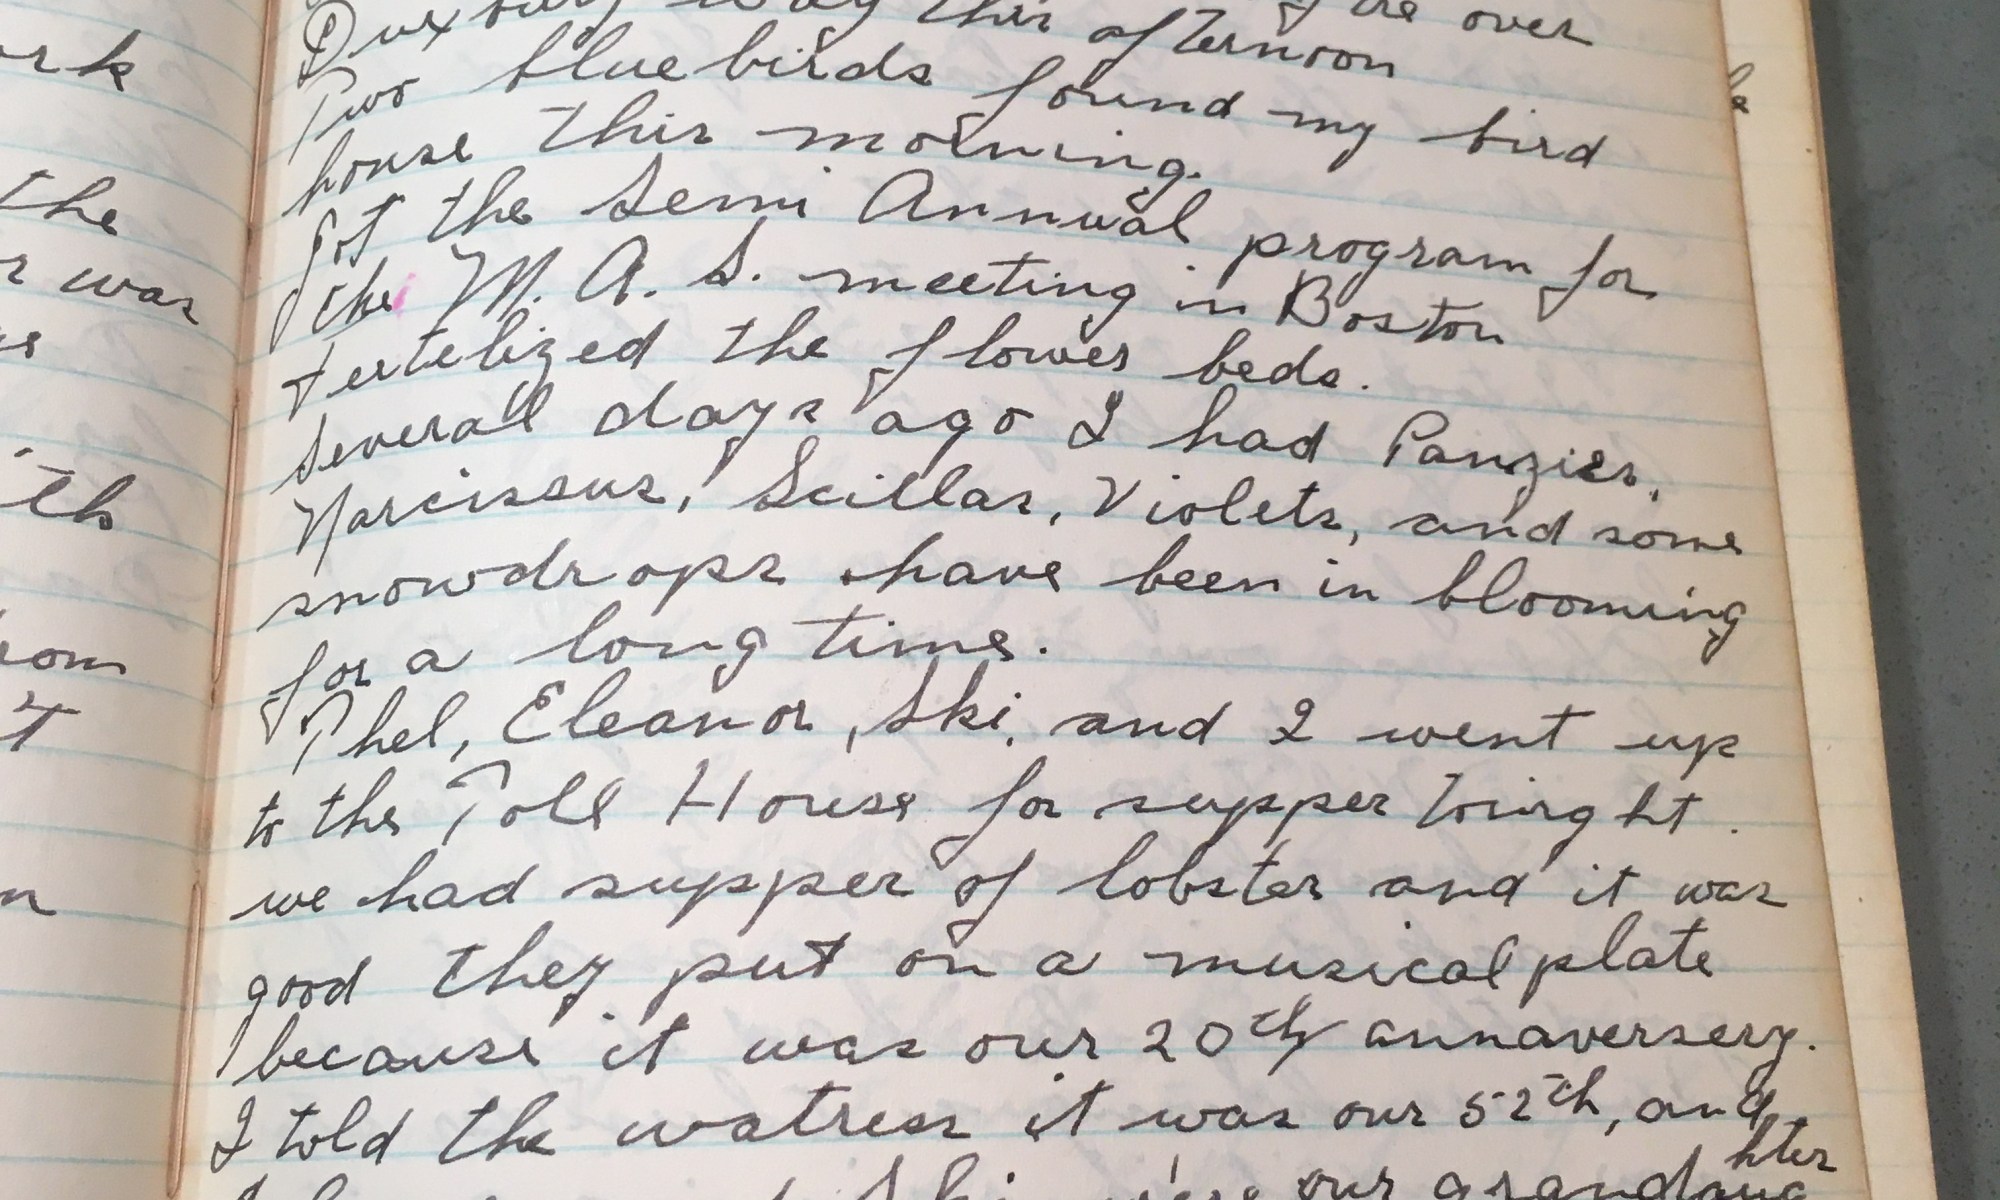 ork
the
was
th
rom
t
n
over
Duxbury way this afternoon
Two bluebirds found my bird
house this morning.
got the Semi Annual program for
the M. A. S. meeting in Boston
Fertelized the flower beds.
Several days ago I had Panzies,
Narcissus, Scillas, Violets, and some
snowdrops have been in blooming
for a long time.
Phel, Eleanor, Ski, and I went up
to the Toll House for supper toinght.
we had supper of lobster and it was
good they put on a musical plate
because it was our 20th annaversery.
I told the watress it was our 52th, and
Ski were our grandaughter